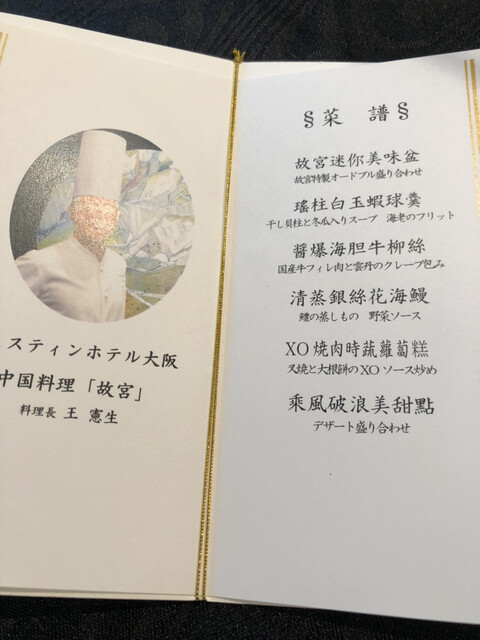 スティンホテル大阪
中国料理「故宮」
料理長 王 憲生
§菜 譜§
故宮迷你美味盆
故宮特製オードブル盛り合わせ
瑤柱白玉蝦球羹
干し貝柱と冬瓜入りスープ 海老のフリット
醤爆海胆牛柳絲
国産牛フィレ肉と雲丹のクレープ包み
清蒸銀絲花海鰻
鱧の蒸しもの 野菜ソース
XO焼肉時蔬蘿蔔糕
叉焼と大根餅のXOソース炒め
乘風破浪美甜點
デザート盛り合わせ